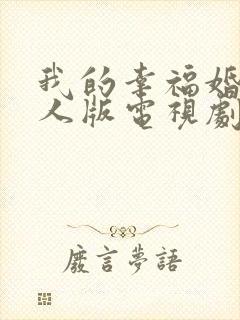 我的幸福婚
人版電視劇
廢言夢語